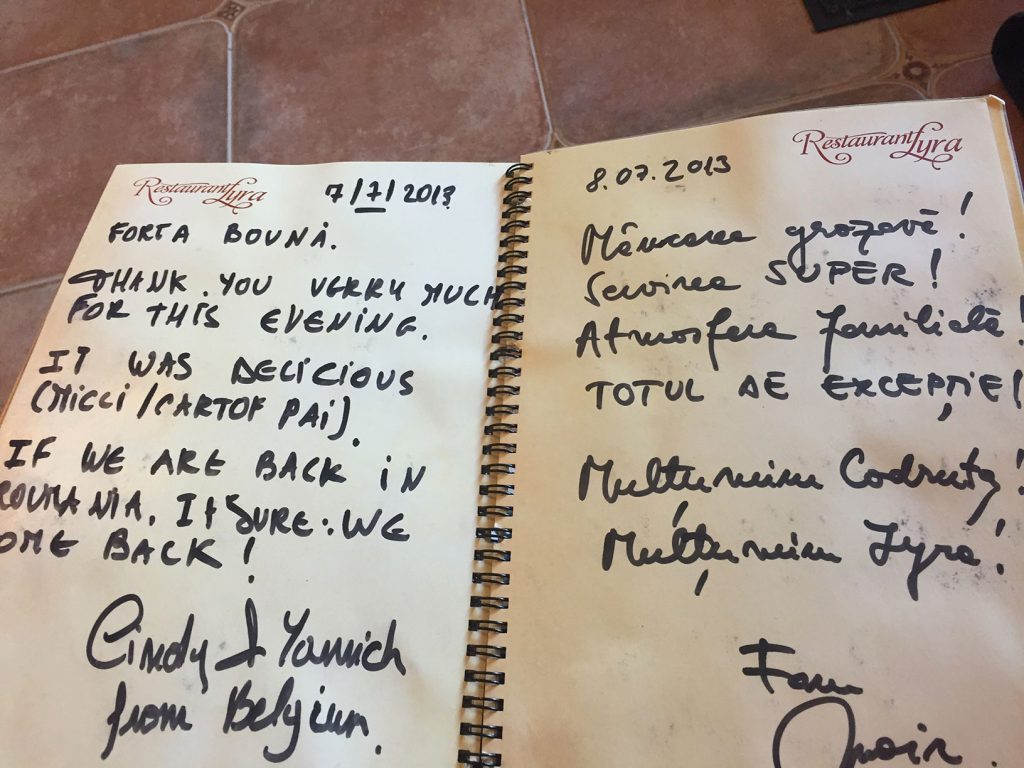 Restaurant Lyra
7/7/2013
FORTA BOUNA.
THANK YOU VERRY MUCH
FOR THIS EVENING.
IT WAS DELICIOUS
(MICCI/CARTOF PAI).
IF WE ARE BACK IN
ROUMANIA. It SURE. WE
OME BACK!
Cindy & Yannick
from Belgium.
Restaurant Lyra
8.07.2013
Mâncarea grozavă!
Servirea SUPER!
Atmosfera familială!
TOTUL DE EXCEPȚIE!
Mulțumim Codruț!
Mulțumim Lyra!
Fam